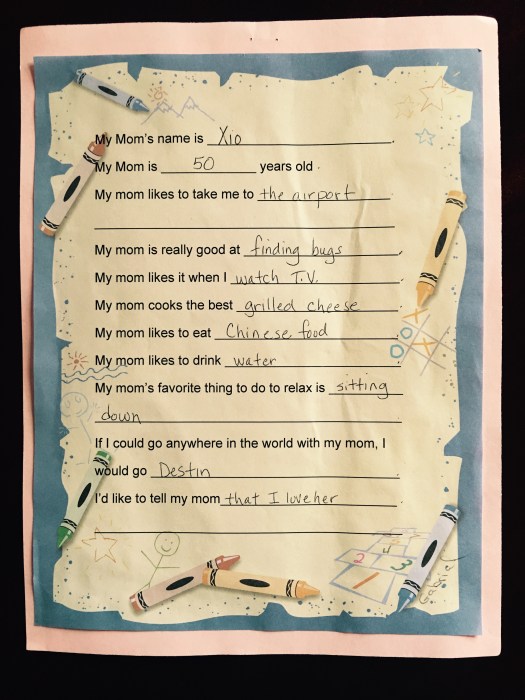 My Mom's name is Xio.
My Mom is 50 years old.
My mom likes to take me to the airport
My mom is really good at finding bugs.
My mom likes it when I watch T.V.
My mom cooks the best grilled cheese
My mom likes to eat Chinese food
My mom likes to drink water
My mom's favorite thing to do to relax is sitting
down.
If I could go anywhere in the world with my mom, I
would go Destin
I'd like to tell my mom that I love her
.
4
2 3
1
Gabriel